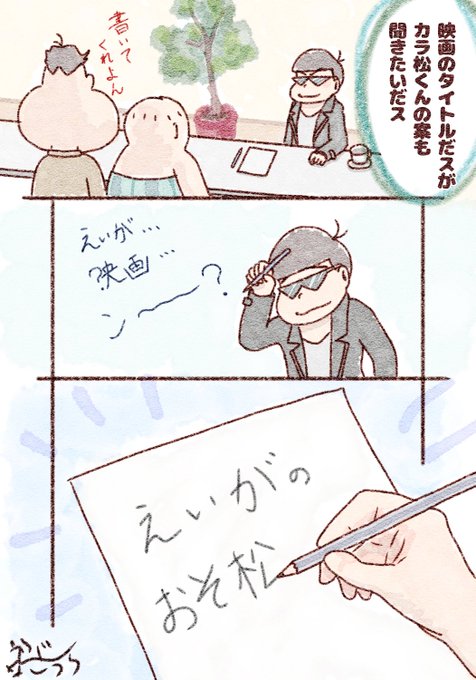 映画のタイトルだスが
カラ松くんの案も
聞きたいだス
書いて
くれよん
えいが…
映画…
ンー〜?
えいがの
おそ松